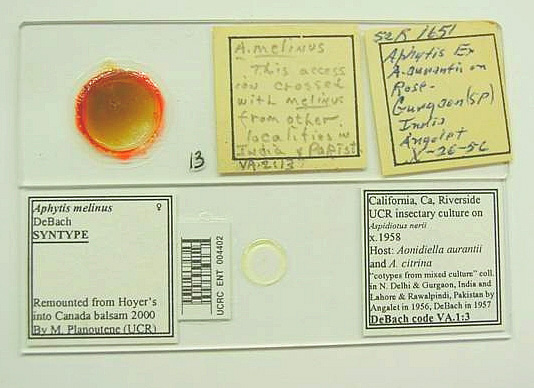 13
A. melinus
This access
ion crossed
with melinus
from other
localities in
India & Pakist
VA:2:13
S&R 1651
Aphytis Ex
A. aurantii on
Rose-
Gurgaon (SP)
India
Angelet
X-26-56
Aphytis melinus ♀
DeBach
SYNTYPE
Remounted from Hoyer's
into Canada balsam 2000
By M. Planoutene (UCR)
UCRC ENT 004402
California, Ca, Riverside
UCR insectary culture on
Aspidiotus nerii
x.1958
Host: Aonidiella aurantii
and A. citrina
"cotypes from mixed culture" coll.
in N. Delhi & Gurgaon, India and
Lahore & Rawalpindi, Pakistan by
Angalet in 1956, DeBach in 1957
DeBach code VA.1:3